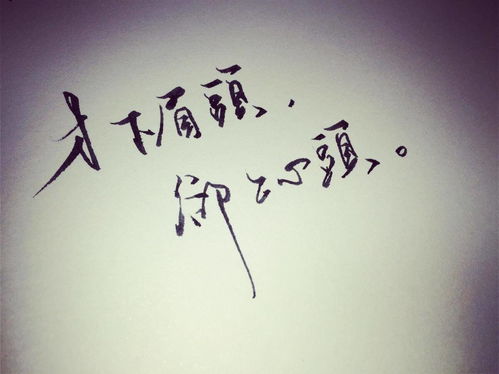 才下眉頭，
卻上心頭。